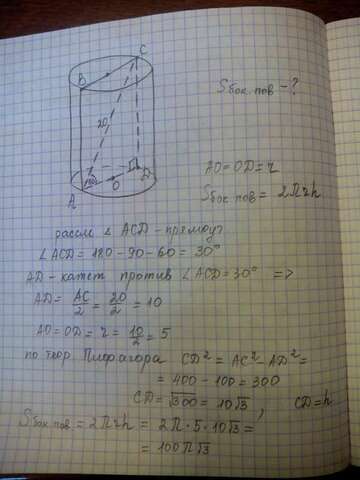 C
B
20
Sбок. пов - ?
60°
O
D
A
AO = OD = r
Sбок пов = 2πrh
рассм △ ACD - прямоуг.
∠ACD = 180 - 90 - 60 = 30°
AD - катет против ∠ACD = 30° =>
AD = AC/2 = 20/2 = 10
AO = OD = r = 10/2 = 5
по теор. Пифагора CD² = AC² - AD² =
= 400 - 100 = 300
CD = √300 = 10√3, CD = h
Sбок пов = 2πrh = 2π · 5 · 10√3 =
= 100π√3